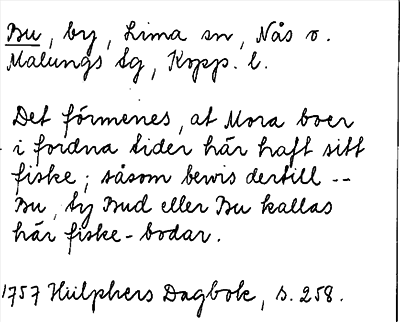 Bu, by, Lima sn, Nås o.
Malungs tg, Kopp. l.
Det förmenes, at Mora boer
i fordna tider här haft sitt
fiske; såsom bewis dertill --
Bu, ty Bud eller Bu kallas
här fiske-bodar.
1757 Hülphers Dagbok, s. 258.